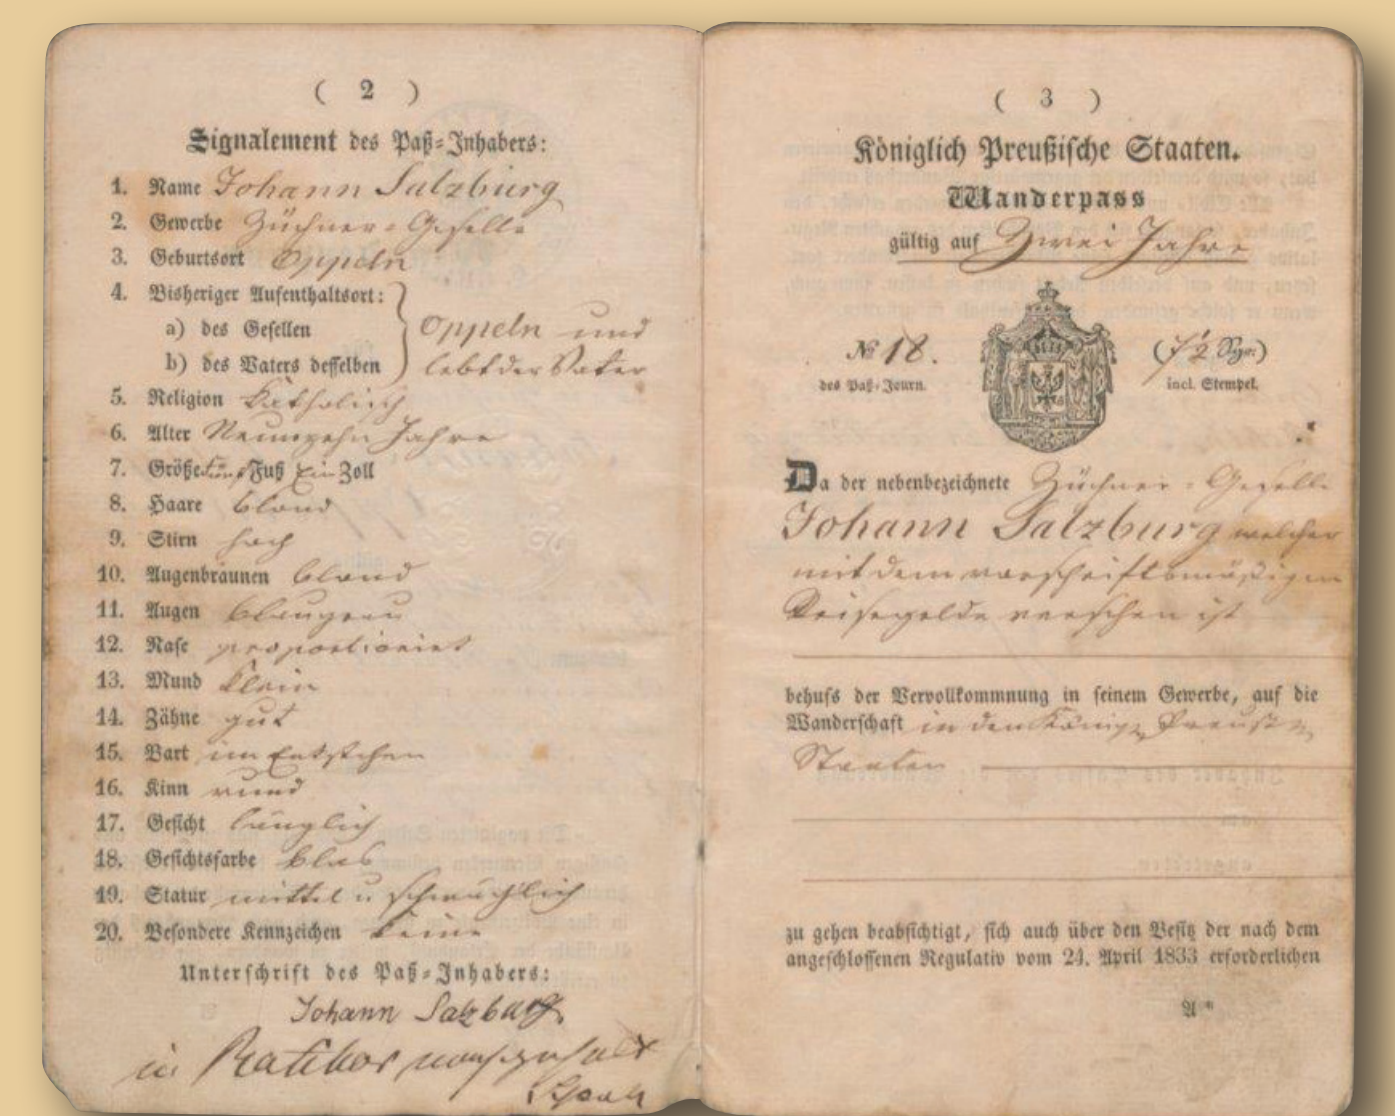 ( 2 )
Signalement des Paß-Inhabers:
1. Name Johann Salzburg
2. Gewerbe Züchner-Geselle
3. Geburtsort Oppeln
4. Bisheriger Aufenthaltsort:
a) des Gesellen
b) des Vaters desselben
Oppeln und
lebt der Vater
5. Religion Katholisch
6. Alter Neunzehn Jahre
7. Größe Fünf Fuß Ein Zoll
8. Haare blond
9. Stirn hoch
10. Augenbraunen blond
11. Augen blaugrau
12. Nase proportionirt
13. Mund klein
14. Zähne gut
15. Bart im Entstehen
16. Kinn rund
17. Gesicht länglich
18. Gesichtsfarbe blas
19. Statur mittel u schwächlich
20. Besondere Kennzeichen keine
Unterschrift des Paß-Inhabers:
Johann Salzburg
in Ratibor
( 3 )
Königlich Preußische Staaten.
Wanderpass
gültig auf Zwei Jahre
№ 18.
des Paß-Journ.
(7½ Sgr.)
incl. Stempel.
Da der nebenbezeichnete Züchner-Geselle
Johann Salzburg welcher
mit dem vorschriftsmäßigen
Reisegelde versehen ist
behufs der Vervollkommnung in seinem Gewerbe, auf die
Wanderschaft in den Königl Preuß
Staaten
zu gehen beabsichtigt, sich auch über den Besitz der nach dem
angeschlossenen Regulativ vom 24. April 1833 erforderlichen
A*